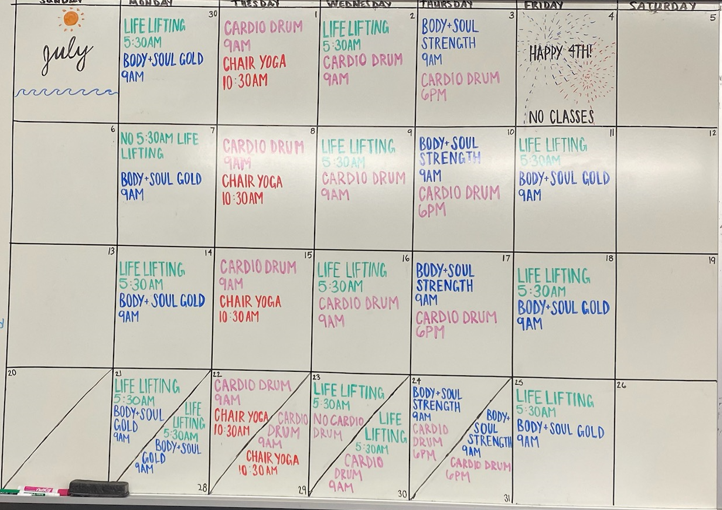 SUNDAY
MONDAY
TUESDAY
WEDNESDAY
THURSDAY
FRIDAY
SATURDAY
July
30
LIFE LIFTING
5:30AM
BODY+SOUL GOLD
9AM
1
CARDIO DRUM
9AM
CHAIR YOGA
10:30AM
2
LIFE LIFTING
5:30AM
CARDIO DRUM
9AM
3
BODY+SOUL
STRENGTH
9AM
CARDIO DRUM
6PM
4
HAPPY 4TH!
NO CLASSES
5
6
7
NO 5:30AM LIFE
LIFTING
BODY+SOUL GOLD
9AM
8
CARDIO DRUM
9AM
CHAIR YOGA
10:30AM
9
LIFE LIFTING
5:30AM
CARDIO DRUM
9AM
10
BODY+SOUL
STRENGTH
9AM
CARDIO DRUM
6PM
11
LIFE LIFTING
5:30AM
BODY+SOUL GOLD
9AM
12
13
14
LIFE LIFTING
5:30AM
BODY+SOUL GOLD
9AM
15
CARDIO DRUM
9AM
CHAIR YOGA
10:30AM
16
LIFE LIFTING
5:30AM
CARDIO DRUM
9AM
17
BODY+SOUL
STRENGTH
9AM
CARDIO DRUM
6PM
18
LIFE LIFTING
5:30AM
BODY+SOUL GOLD
9AM
19
20
21
LIFE LIFTING
5:30AM
BODY+SOUL
GOLD
9AM
LIFE
LIFTING
5:30AM
BODY+SOUL
GOLD
9AM
28
22
CARDIO DRUM
9AM
CHAIR YOGA
10:30AM
CARDIO
DRUM
9AM
CHAIR YOGA
10:30AM
29
23
LIFE LIFTING
5:30AM
NO CARDIO
DRUM
LIFE
LIFTING
5:30AM
CARDIO
DRUM
9AM
30
24
BODY+SOUL
STRENGTH
9AM
CARDIO
DRUM
6PM
BODY+
SOUL
STRENGTH
9AM
CARDIO DRUM
6PM
31
25
LIFE LIFTING
5:30AM
BODY+SOUL GOLD
9AM
26